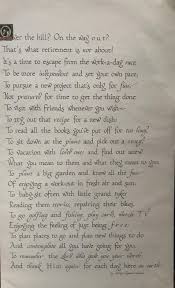 Over the hill? On the way out?
That's what retirement is not about!
It's a time to escape from the work-a-day race
To be more independent and set your own pace,
To pursue a new project that's only for fun,
Not pressured for time to get the thing done
To visit with friends whenever you wish—
To try out that recipe for a new dish!
To read all the books you've put off for so long!
To sit down at the piano and pick out a song!
To vacation with loved ones and find out anew
What you mean to them and what they mean to you.
To plant a big garden and know all the fun
Of enjoying a work-out in fresh air and sun.
To baby-sit often with little grand tykes
Reading them stories, repairing their bikes,
To go golfing and fishing, play cards, watch T.V.
Enjoying the feeling of just being Free
To plan places to go and plan new things to do
And contemplate all you have going for you.
To remember the Lord who gave you your years
And thank Him again for each day here on earth